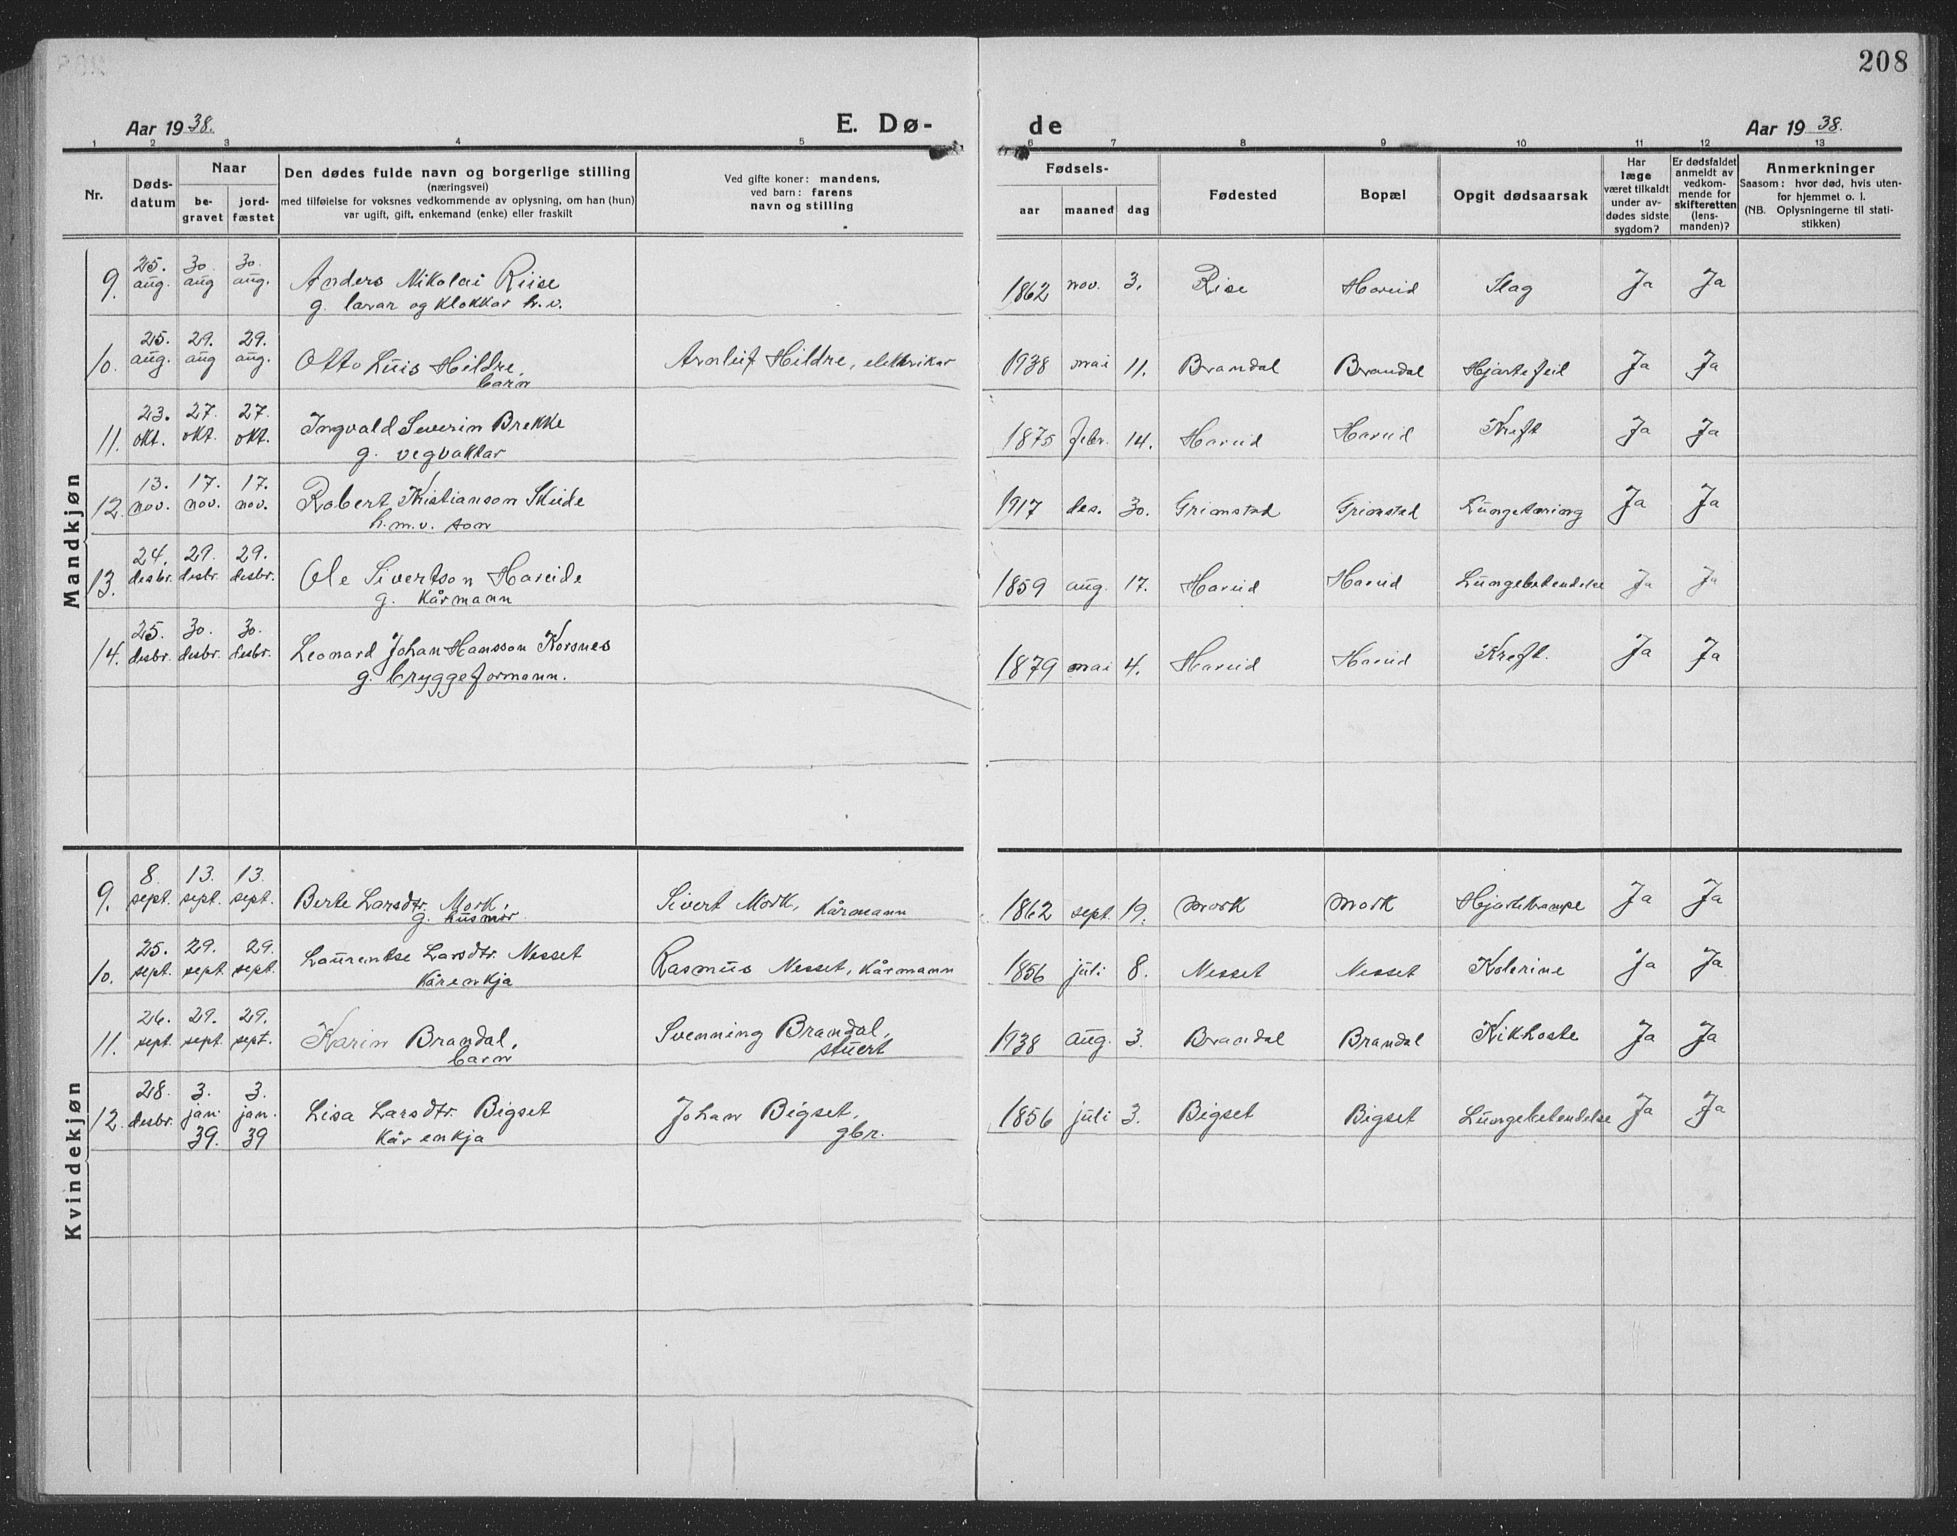 208
Aar 1938. E. Dø- de Aar 1938.
1 2 3 4 5 6 7 8 9 10 11 12 13
Nr. Døds-datum Naar be-gravet jord-fæstet Den dødes fulde navn og borgerlige stilling (næringsvei) med tilføielse for voksnes vedkommende av oplysning, om han (hun) var ugift, gift, enkemand (enke) eller fraskilt Ved gifte koner: mandens, ved barn: farens navn og stilling Fødsels- aar maaned dag Fødested Bopæl Opgit dødsaarsak Har læge været tilkaldt under av-dødes sidste sygdom? Er dødsfaldet anmeldt av vedkom-mende for skifteretten (lens-manden)? Anmerkninger Saasom: hvor død, hvis uten-for hjemmet o. l. (NB. Oplysningerne til stati-stikken)
Mandkjøn
9. 25. aug. 30. aug 30. aug. Anders Mikolai Riise 1862 nov. 3. Rise Hareid Slag Ja Ja
g. lærar og klokkar h.v.
10. 25. aug. 29. aug 29. aug. Otto Luis Hildre, Arnleif Hildre, elektrikar 1938 mai 11. Brandal Brandal Hjartefeil Ja Ja
barn
11. 23. okt. 27. okt. 27. okt. Ingvald Severin Brekke 1875 febr. 14. Hareid Hareid Kreft Ja Ja
g. vegvaktar
12. 13. nov. 17. nov. 17. nov. Robert Kristianson Skeide 1917 des. 30. Grimstad Grimstad Lungetæring Ja Ja
h.m.v. son
13. 24. desbr. 29. desbr. 29. desbr. Ole Sivertson Hareide 1859 aug. 17. Hareid Hareid Lungebetendelse Ja Ja
g. kårmann
14. 25. desbr. 30. desbr. 30. desbr. Leonard Johan Hansson Korsnes 1879 mai 4. Hareid Hareid Kreft. Ja Ja
g. bryggeformann.
Kvindekjøn
9. 8. sept. 13. sept. 13. sept. Berte Larsdtr. Mork, Sivert Mork, kårmann 1862 sept. 19. Mork Mork Hjartekrampe Ja Ja
g. husmor
10. 25. sept. 29. sept. 29. sept. Laurentse Larsdtr. Nesset Rasmus Nesset, kårmann 1856 juli 8. Nesset Nesset Kolerine Ja Ja
kårenkja
11. 26. sept. 29. sept 29. sept. Karin Brandal, Svenning Brandal, 1938 aug. 3. Brandal Brandal Kikhoste Ja Ja
barn stuert
12. 28. desbr. 3. jan. 39. 3. jan. 39 Lisa Larsdtr. Bigset Johan Bigset, 1856 juli 3. Bigset Bigset Lungebetendelse Ja Ja
kårenkja gbr.